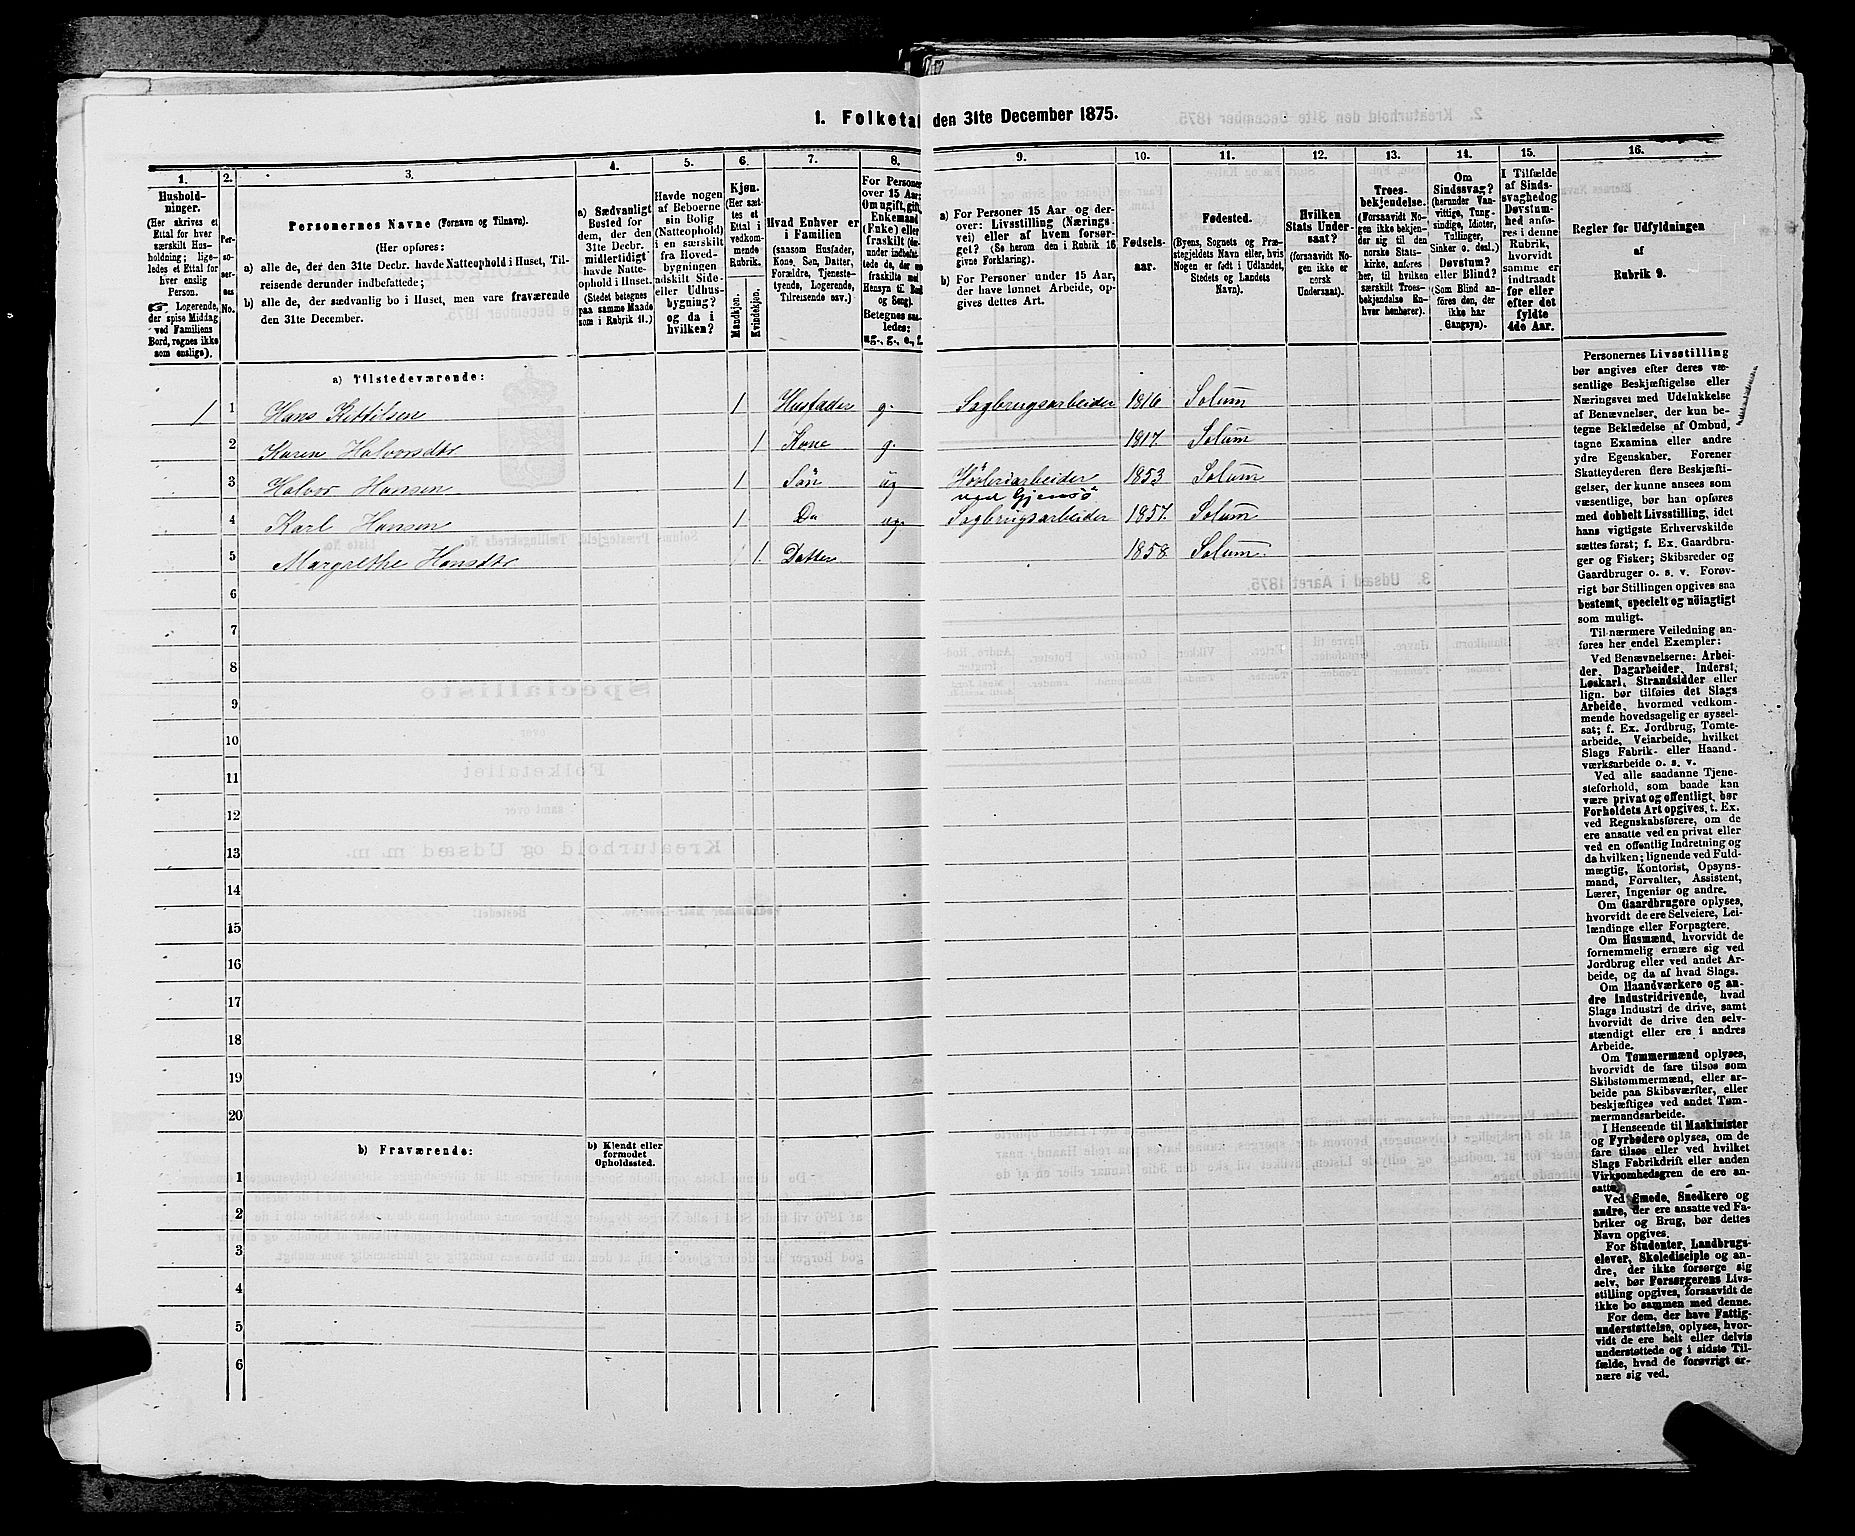 1. Folketal den 31te December 1875.
1. 2. 3. 4. 5. 6. 7. 8. 9. 10. 11. 12. 13. 14. 15. 16.
Hushold-
ninger.
(Her skrives et
Ettal for hver
særskilt Hus-
holdning; lige-
ledes et Ettal for
hver enslig
Person.
Logerende,
der spise Middag
ved Familiens
Bord, regnes ikke
som enslige).
Per-
so-
ner-
nes
No.
Personernes Navne (Fornavn og Tilnavn).
(Her opføres:
a) alle de, der den 31te Decbr. havde Natteophold i Huset, Til-
reisende derunder indbefattede;
b) alle de, der sædvanlig bo i Huset, men vare fraværende
den 31te December.
a) Sædvanligt
Bosted for
dem, der den
31te Decbr.
midlertidigt
havde Natte-
ophold i Huset.
(Stedet betegnes
paa samme Maade
som i Rubrik 11.)
Havde nogen
af Beboerne
sin Bolig
(Natteophold)
i en særskilt
fra Hoved-
bygningen
adskilt Side-
eller Udhus-
bygning?
og da i
hvilken?
Kjøn.
(Her sæt-
tes et
Ettal i
vedkom-
mende
Rubrik.
Mandkjøn.
Kvindekjøn.
Hvad Enhver er
i Familien
(saasom Husfader,
Kone, Søn, Datter,
Forældre, Tjeneste-
tyende, Logerende,
Tilreisende osv.)
For Personer
over 15 Aar:
Om ugift, gift,
Enkemand
(Enke) eller
fraskilt (der-
under indbefat-
tede de, der ere
fraskilte med
Hensyn til Bord
og Seng).
Betegnes saa-
ledes:
ug., g., e., f.
a) For Personer 15 Aar og der-
over: Livsstilling (Nærings-
vei) eller af hvem forsør-
get? (Se herom den i Rubrik 16
givne Forklaring).
b) For Personer under 15 Aar,
der have lønnet Arbeide, op-
gives dettes Art.
Fødsels-
aar.
Fødested.
(Byens, Sognets og Præ-
stegjeldets Navn eller, hvis
Nogen er født i Udlandet,
Stedets og Landets
Navn).
Hvilken
Stats Under-
saat?
(forsaavidt No-
gen ikke er
norsk
Undersaat).
Troes-
bekjendelse.
(Forsaavidt No-
gen ikke bekjen-
der sig til den
norske Stats-
kirke, anføres
her, til hvilken
særskilt Troes-
bekjendelse En-
hver henhører).
Om
Sindssvag?
(herunder Van-
vittige, Tung-
sindige, Idioter,
Tullinger,
Sinker o. desl.)
Døvstum?
eller Blind?
(Som Blind an-
føres den, der
ikke har
Gangsyn).
I Tilfælde
af Sinds-
svaghed og
Døvstum-
hed anfø-
res i denne
Rubrik,
hvorvidt
samme er
indtraadt
før eller
efter det
fyldte
4de Aar.
Regler for Udfyldningen
af
Rubrik 9.
a) Tilstedeværende:
1 1 Hans Kittilsen 1 Husfader g. Sagbrugsarbeider 1816 Solum
2 Karen Halvorsdtr 1 Kone g 1817. Solum
3 Halvor Hansen 1 Søn ug Hösleriarbeider 1853 Solum
ved Gjemsö
4 Karl Hansen 1 Do ug. Sagbrugsarbeider 1857. Solum
5 Margrethe Hansdtr 1. Datter 1858. Solum.
6
7
8
9
10
11
12
13
14
15
16
17
18
19
20
b) Fraværende:
b) Kjendt eller
formodet
Opholdssted.
1
2
3
4
5
6
Personernes Livsstilling
bør angives efter deres væ-
sentlige Beskjæftigelse eller
Næringsvei med Udelukkelse
af Benævnelser, der kun be-
tegne Beklædelse af Ombud,
tagne Examina eller andre
ydre Egenskaber. Forener
Skatteyderen flere Beskjæfti-
gelser, der kunne ansees som
væsentlige, bør han opføres
med dobbelt Livsstilling, idet
hans vigtigste Erhvervskilde
sættes først; f. Ex. Gaardbru-
ger og Fisker; Skibsreder og
Gaardbruger o. s. v. Forøv-
rigt bør Stillingen opgives saa
bestemt, specielt og nöiagtigt
som muligt.
Til nærmere Veiledning an-
føres her endel Exempler:
Ved Benævnelserne: Arbei-
der, Dagarbeider, Inderst,
Løskarl, Strandsidder eller
lign. bør tilføies det Slags
Arbeide, hvormed vedkom-
mende hovedsagelig er syssel-
sat; f. Ex. Jordbrug, Tomte-
arbeide, Veiarbeide, hvilket
Slags Fabrik- eller Haand-
værksarbeide o. s. v.
Ved alle saadanne Tjene-
steforhold, som baade kan
være privat og offentligt, bør
Forholdets Art opgives, t. Ex.
ved Regnskabsførere, om de
ere ansatte ved en privat eller
ved en offentlig Indretning og
da hvilken; lignende ved Fuld-
mægtig, Kontorist, Opsyns-
mand, Forvalter, Assistent,
Lærer, Ingeniør og andre.
Om Gaardbrugere oplyses,
hvorvidt de ere Selveiere, Lei-
lændinge eller Forpagtere.
Om Husmænd, hvorvidt de
fornemmelig ernære sig ved
Jordbrug eller ved andet Ar-
beide, og da af hvad Slags.
Om Haandværkere og an-
dre Industridrivende, hvad
Slags Industri de drive, samt
hvorvidt de drive den selv-
stændigt eller ere i andres
Arbeide.
Om Tømmermænd oplyses,
hvorvidt de fare tilsøs som
Skibstømmermænd, eller ar-
beide paa Skibsværfter, eller
beskjæftiges ved andet Tøm-
mermandsarbeide.
I Henseende til Maskinister
og Fyrbødere oplyses, om de
fare tilsøs eller ved hvilket
Slags Fabrikdrift eller anden
Virksomhedsgren de ere an-
satte.
Ved Smede, Snedkere og
andre, der ere ansatte ved Fa-
briker og Brug, bør dettes
Navn opgives.
For Studenter, Landbrugs-
elever, Skoledisciple og an-
dre, der ikke forsørge sig
selv, bør Forsørgerens Livs-
stilling opgives, forsaavidt de
ikke bo sammen med denne.
For dem, der have Fattig-
understøttelse, oplyses, hvor-
vidt de ere helt eller delvis
understøttede og i sidste Til-
fælde, hvad de forøvrigt er-
nære sig ved.